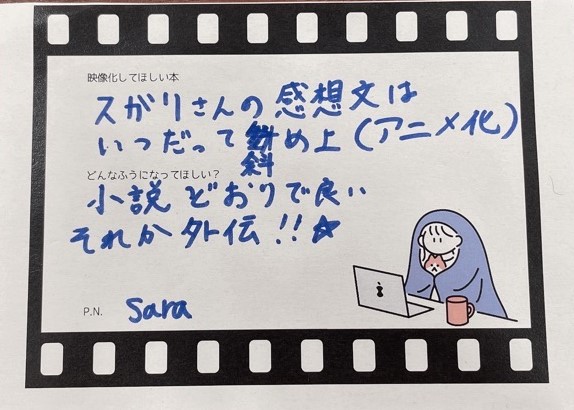 映像化してほしい本
スがりさんの感想文は
いつだって斜め上(アニメ化)
どんなふうになってほしい?
小説どおりで良い
それか外伝!!☆
P.N. Sara